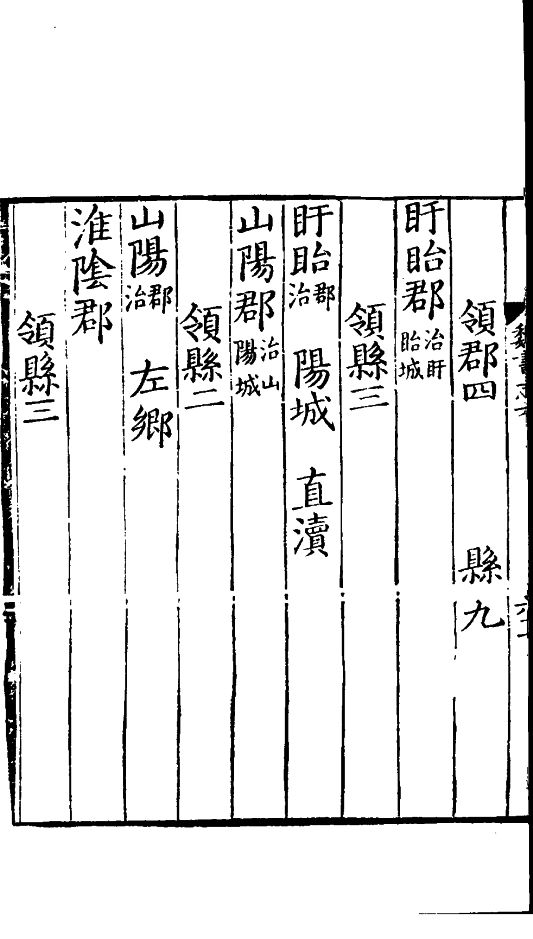 領郡四　縣九
盱眙郡治盱眙城
領縣三
盱眙郡治　陽城　直瀆
山陽郡治山陽城
領縣二
山陽郡治　左鄉
淮陰郡
領縣三